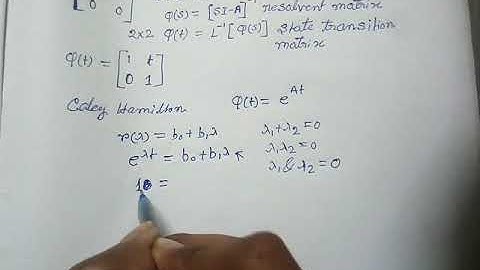 φ(s) = [SI-A]⁻¹ resolvent matrix
0 0
2x2 φ(t) = L⁻¹[φ(s)] state transition
matrix
φ(t) = [1 t
0 1]
Caley Hamilton φ(t) = e^At
r(λ) = b₀+b₁λ λ₁+λ₂=0
e^λt = b₀+b₁λ λ₁λ₂=0
λ₁&λ₂=0
1 =